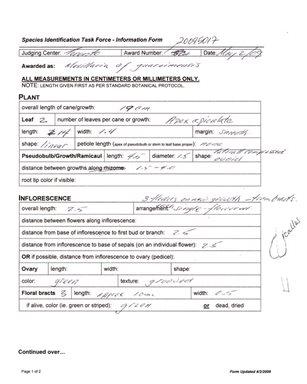 Species Identification Task Force - Information Form 20095017
Judging Center: Toronto Award Number: Date: May 2/09
Awarded as: of
ALL MEASUREMENTS IN CENTIMETERS OR MILLIMETERS ONLY.
NOTE: LENGTH GIVEN FIRST AS PER STANDARD BOTANICAL PROTOCOL.
PLANT
overall length of cane/growth: 19 cm
Leaf 2 number of leaves per cane or growth: Apex apiculate
length: 14 width: 1.4 margin: smooth
shape: linear petiole length (apex of pseudobulb or stem to leaf base proper): none
Pseudobulb/Growth/Ramicaul length: 4.5 diameter: 1.5 shape: laterally compressed ovoid
distance between growths along rhizome:
root tip color if visible:
INFLORESCENCE 3 on new growth from bract.
overall length: 2.5 arrangement: single flowered
distance between flowers along inflorescence:
distance from base of inflorescence to first bud or branch: 2.5
distance from inflorescence to base of sepals (on an individual flower): 2.5
OR if possible, distance from inflorescence to ovary (pedicel):
Ovary length: width: shape:
color: green texture: grooved
Floral bracts 3 length: approx 1cm width: 0.5
if alive, color (ie. green or striped): green or dead, dried
Continued over...
Page 1 of 2 Form Updated 4/2/2009